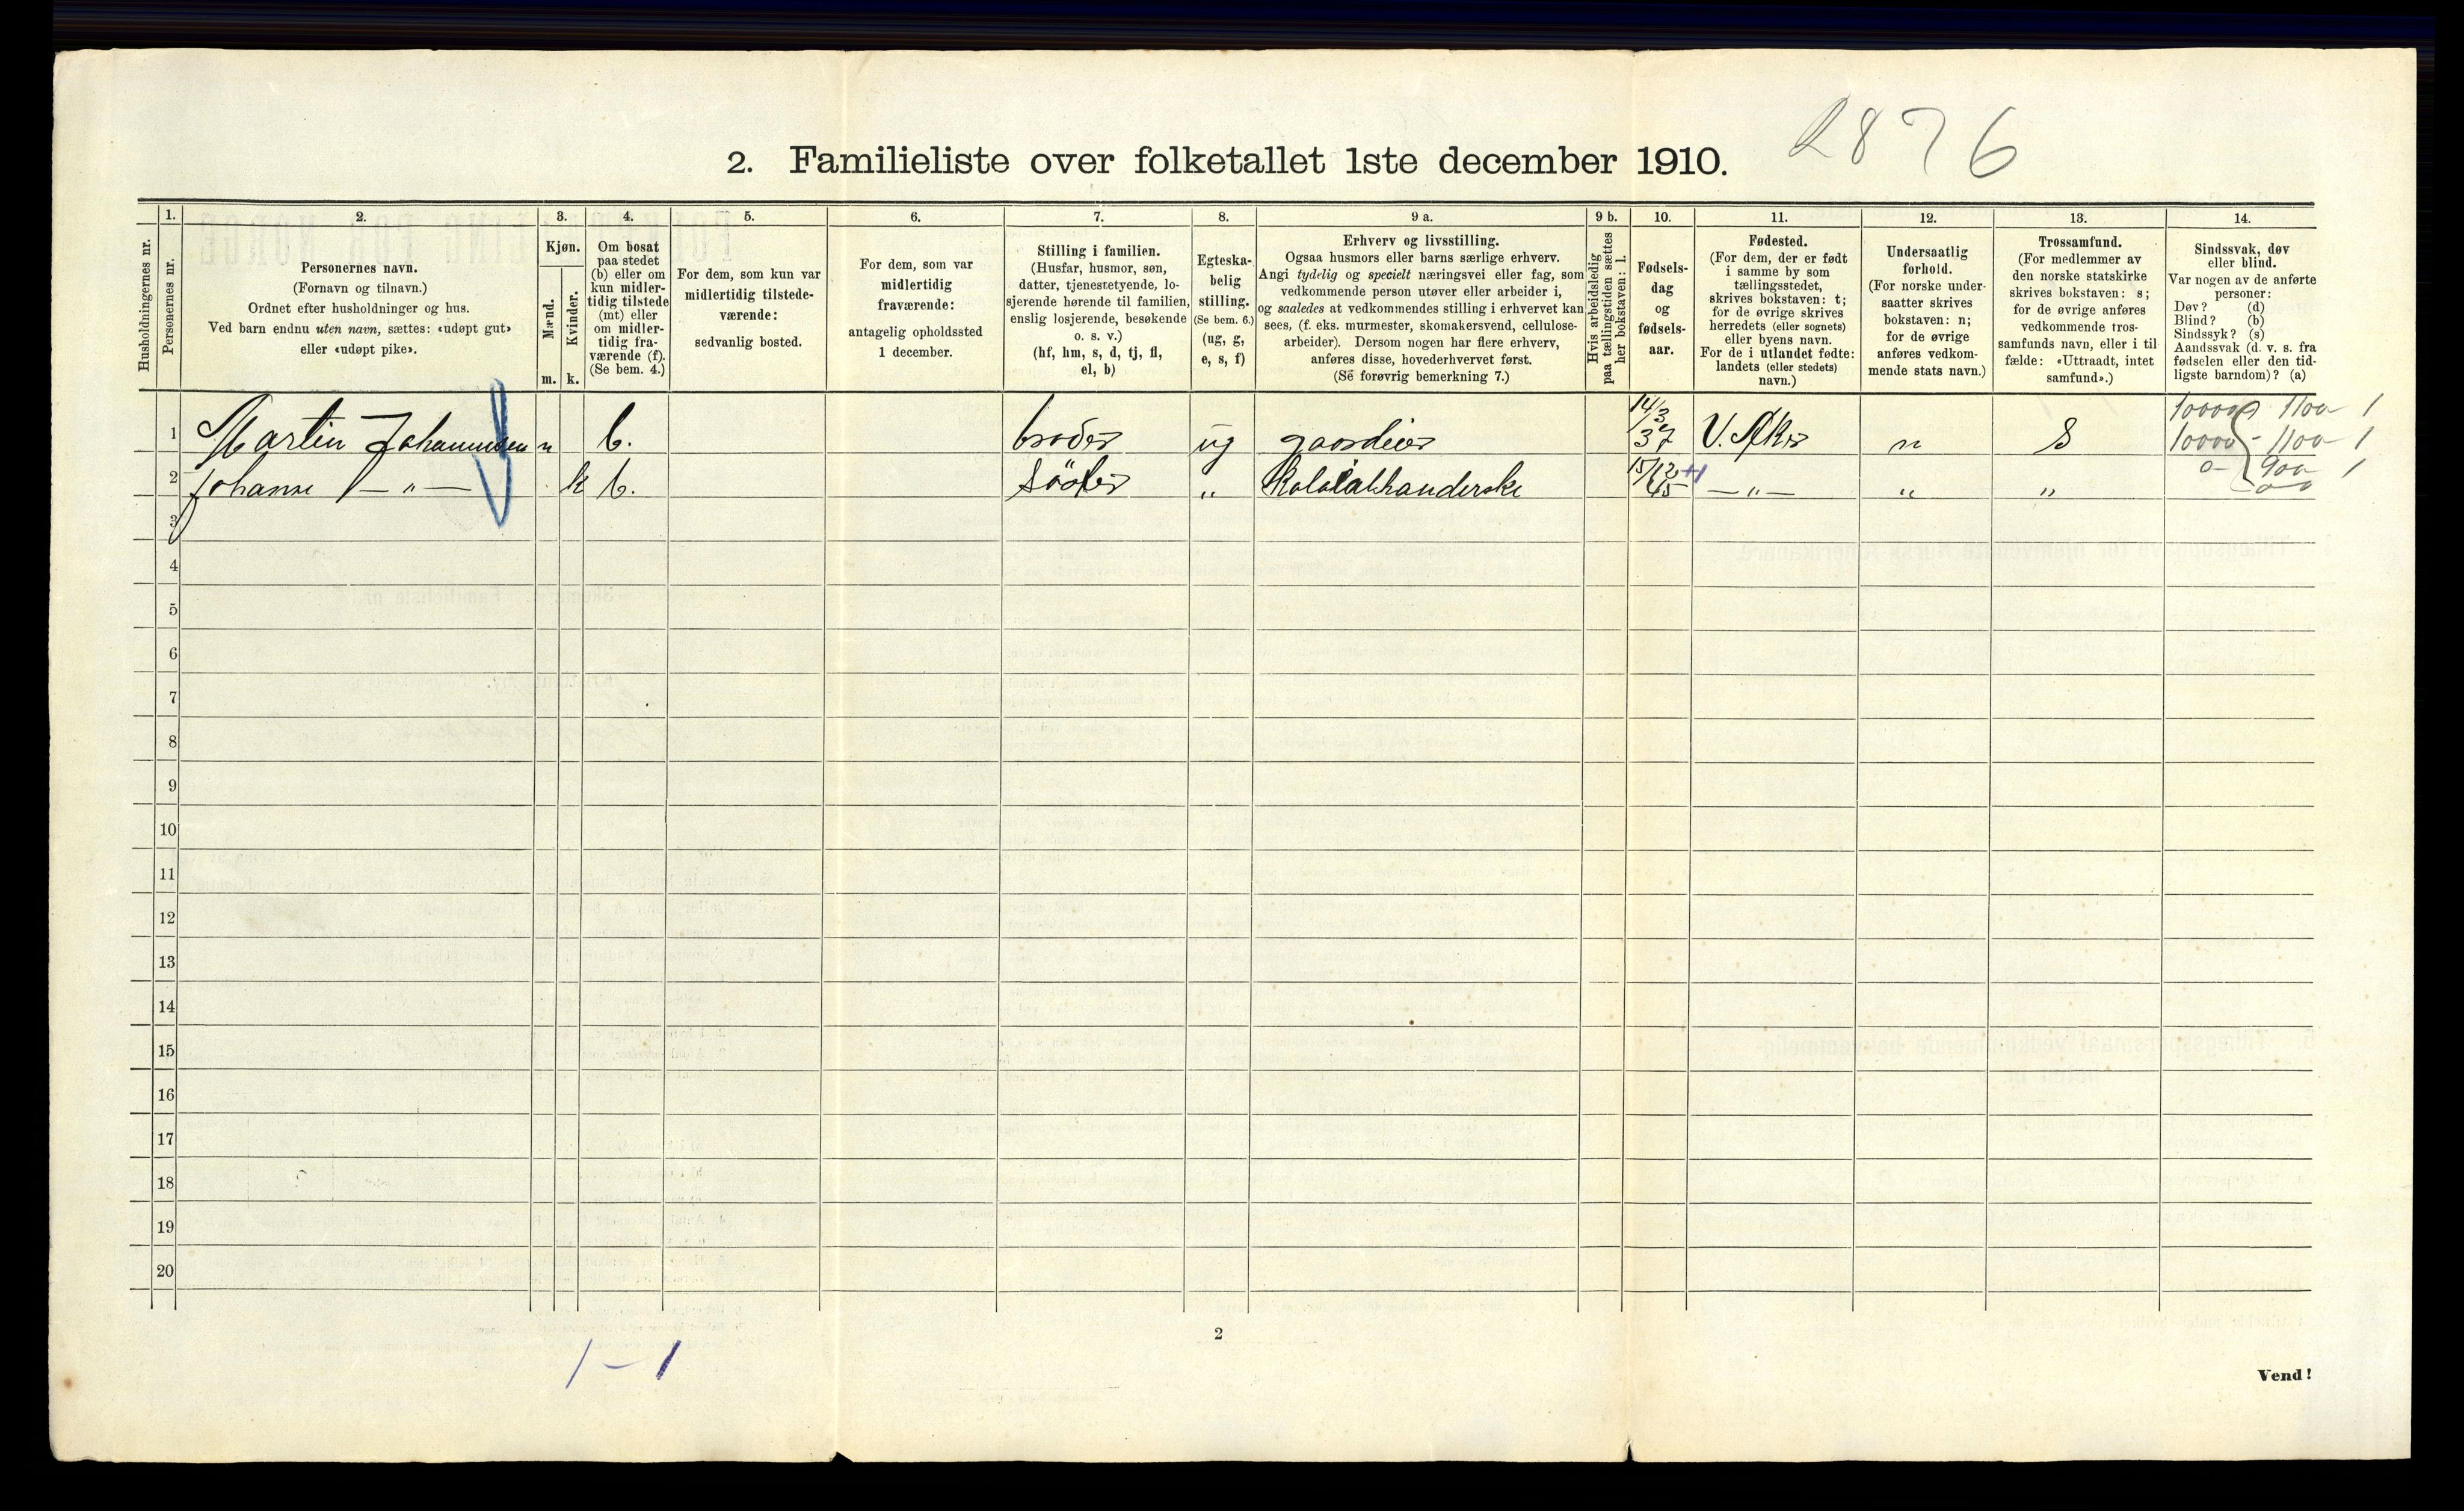 2876
2. Familieliste over folketallet 1ste december 1910.
1. 2. 3. 4. 5. 6. 7. 8. 9 a. 9 b. 10. 11. 12. 13. 14.
Husholdningernes nr.
Personernes nr.
Personernes navn.
(Fornavn og tilnavn.)
Ordnet efter husholdninger og hus.
Ved barn endnu uten navn, sættes: «udøpt gut»
eller «udøpt pike».
Kjøn.
Mænd.
m.
Kvinder.
k.
Om bosat
paa stedet
(b) eller om
kun midler-
tidig tilstede
(mt) eller
om midler-
tidig fra-
værende (f).
(Se bem. 4.)
For dem, som kun var
midlertidig tilstede-
værende:
sedvanlig bosted.
For dem, som var
midlertidig
fraværende:
antagelig opholdssted
1 december.
Stilling i familien.
(Husfar, husmor, søn,
datter, tjenestetyende, lo-
sjerende hørende til familien,
enslig losjerende, besøkende
o. s. v.)
(hf, hm, s, d, tj, fl,
el, b)
Egteska-
belig
stilling.
(Se bem. 6.)
(ug, g,
e, s, f)
Erhverv og livsstilling.
Ogsaa husmors eller barns særlige erhverv.
Angi tydelig og specielt næringsvei eller fag, som
vedkommende person utøver eller arbeider i,
og saaledes at vedkommendes stilling i erhvervet kan
sees, (f. eks. murmester, skomakersvend, cellulose-
arbeider). Dersom nogen har flere erhverv,
anføres disse, hovederhvervet først.
(Se forøvrig bemerkning 7.)
Hvis arbeidsledig
paa tællingstiden sættes
her bokstaven: l.
Fødsels-
dag
og
fødsels-
aar.
Fødested.
(For dem, der er født
i samme by som
tællingsstedet,
skrives bokstaven: t;
for de øvrige skrives
herredets (eller sognets)
eller byens navn.
For de i utlandet fødte:
landets (eller stedets)
navn.)
Undersaatlig
forhold.
(For norske under-
saatter skrives
bokstaven: n;
for de øvrige
anføres vedkom-
mende stats navn.)
Trossamfund.
(For medlemmer av
den norske statskirke
skrives bokstaven: s;
for de øvrige anføres
vedkommende tros-
samfunds navn, eller i til
fælde: «Uttraadt, intet
samfund».)
Sindssvak, døv
eller blind.
Var nogen av de anførte
personer:
Døv? (d)
Blind? (b)
Sindssyk? (s)
Aandssvak (d. v. s. fra
fødselen eller den tid-
ligste barndom)? (a)
1 Martin Johannesen m b. broder ug gaardeier 14/3 37 V. Aker n S
10000 - 1100 - 1
2 Johanne — " — k b. söster " 15/12 45 — " — " "
900 1
3
4
5
6
7
8
9
10
11
12
13
14
15
16
17
18
19
20
1 - 1
2
Vend!